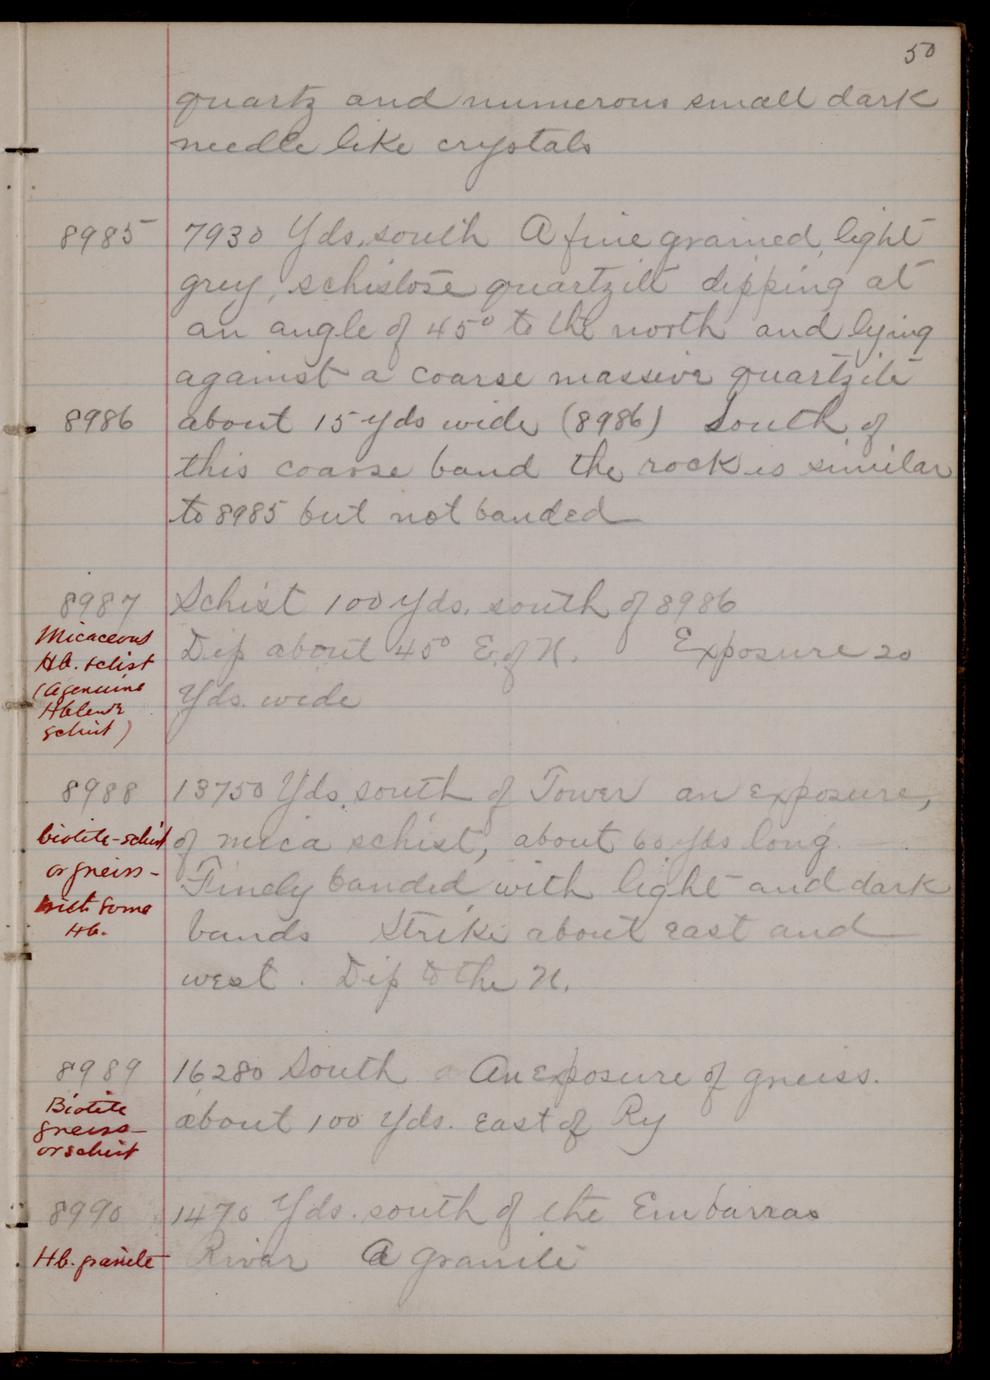 50
quartz and numerous small dark
needle like crystals
8985 7930 Yds. south A fine grained, light
grey, schistose quartzite dipping at
an angle of 45° to the north and lying
against a coarse massive quartzite
8986 about 15 yds wide (8986) South of
this coarse band the rock is similar
to 8985 but not banded
8987 Schist 100 yds. south of 8986
Micaceous
Hb. schist Dip about 45° E. of N. Exposure 20
(a genuine
Hblende Yds. wide
schist)
8988 13750 Yds. south of Tower an exposure,
biotite-schist of mica schist, about 60 yds long.
or gneiss - Finely banded with light and dark
with some
Hb. bands Strike about east and
west. Dip to the N.
8989 16280 South An exposure of gneiss.
Biotite
gneiss- about 100 Yds. east of Ry
or schist
8990 1470 Yds. south of the Embarras
Hb. granite River A granite